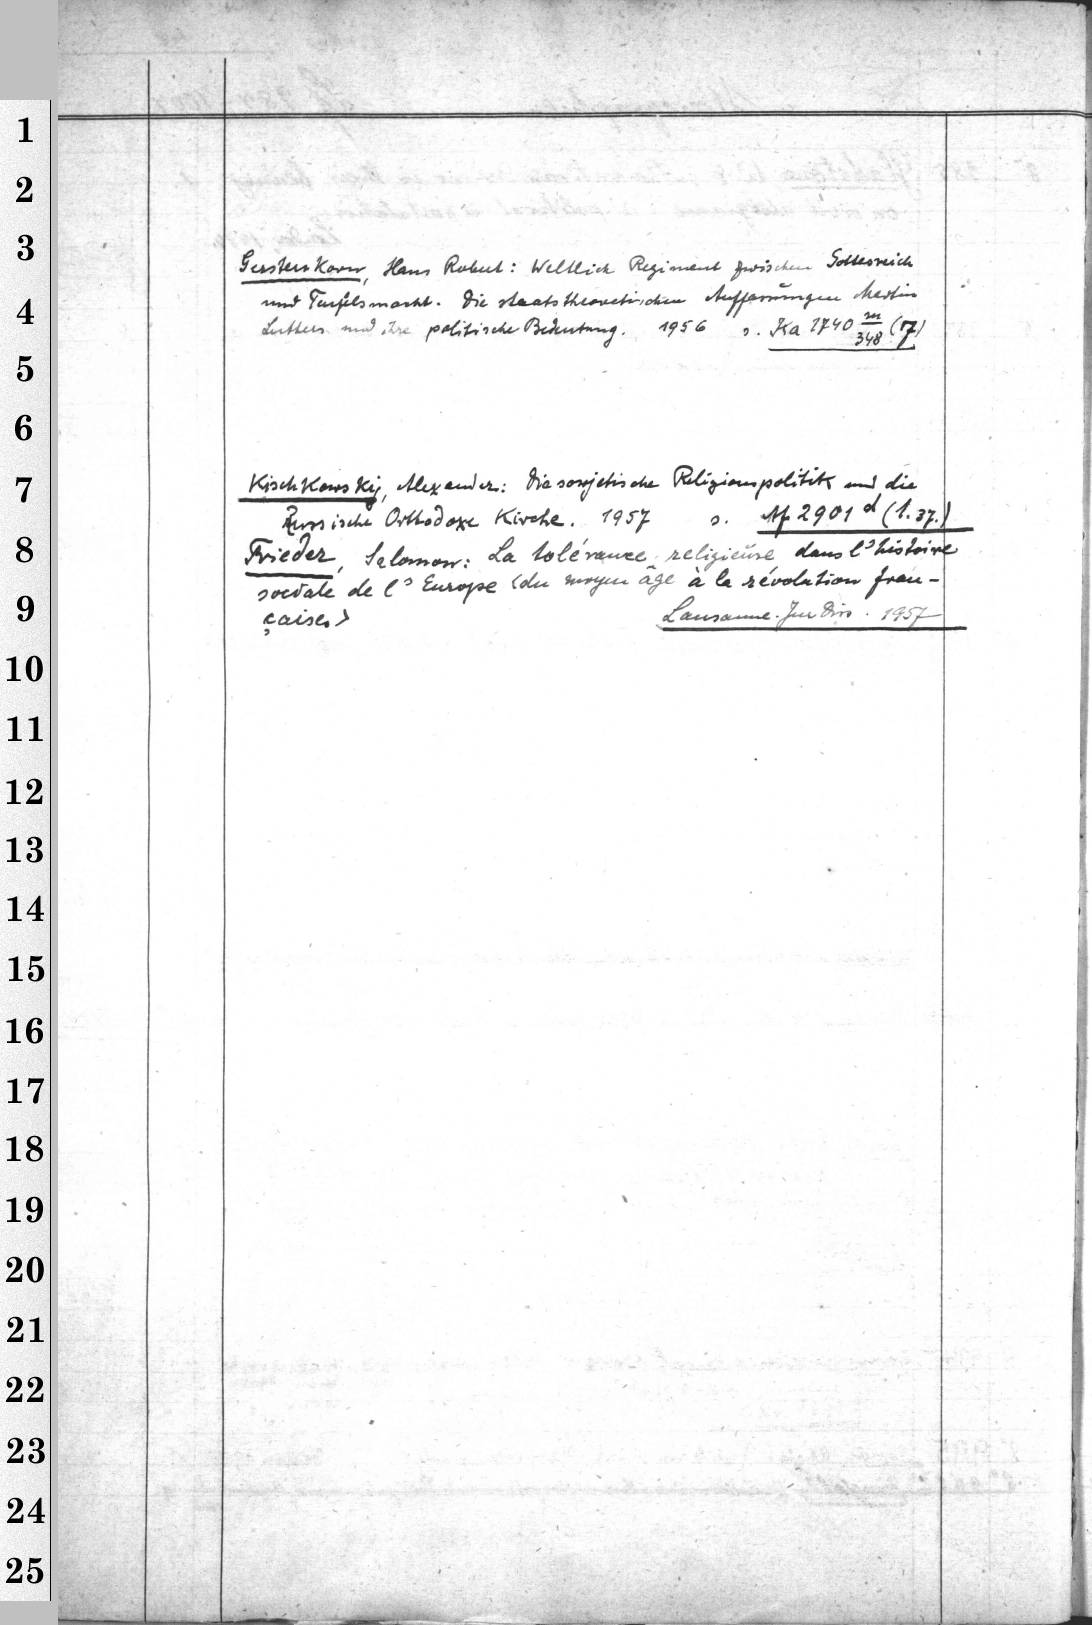 1
2
3
4
5
6
7
8
9
10
11
12
13
14
15
16
17
18
19
20
21
22
23
24
25
Gerstenkorn, Hans Robert: Weltlich Regiment zwischen Gottesreich
und Teufelsmacht. Die staatstheoretischen Auffassungen Martin
Luthers und ihre politische Bedeutung. 1956 s. Ka 2740 m/348 (17)
Kischkowskij, Alexander: Die sowjetische Religionspolitik und die
Russische Orthodoxe Kirche. 1957 s. Af 2901 d (1.37.)
Frieder, Salomon: La tolérance religieuse dans l'histoire
sociale de l'Europe <du moyen âge à la révolution fran-
çaise>
Lausanne. Jur Diss. 1957